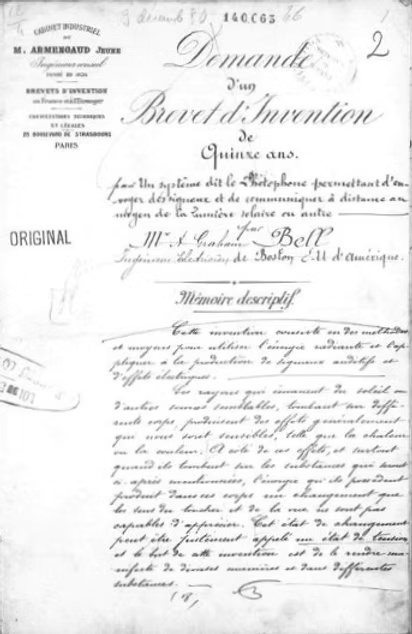 CABINET INDUSTRIEL
DE
M. ARMENGAUD JEUNE
Ingénieur conseil
FONDÉ EN 1836
BREVETS D'INVENTION
en France et à l'Étranger
CONSULTATIONS TECHNIQUES
ET LÉGALES
23 BOULEVARD DE STRASBOURG
PARIS
140,063
2
Demande
d'un
Brevet d'Invention
de
Quinze ans.
pour Un système dit le Photophone permettant d'en-
voyer des signaux et de communiquer à distance au
moyen de la lumière solaire ou autre
ORIGINAL
Mr A Graham Bell
Ingénieur Électricien de Boston E.U d'Amérique.
Mémoire descriptif.
Cette invention consiste en des méthodes
et moyens pour utiliser l'énergie radiante et l'ap-
pliquer à la production de signaux auditifs et
d'effets électriques.
Les rayons qui émanent du soleil ou
d'autres sources semblables, tombant sur diffé-
rents corps, produisent des effets généralement
qui nous sont sensibles, telle que la chaleur
ou la couleur. A côté de ces effets, et surtout
quand ils tombent sur les substances qui seront
ci après mentionnées, l'énergie qu'ils possèdent
produit dans ces corps un changement que
les sens du toucher et de la vue ne sont pas
capables d'apprécier. Cet état de changement
peut être justement appelé un état de tension,
et le but de cette invention est de le rendre ma-
nifeste de diverses manières et dans différentes
substances.